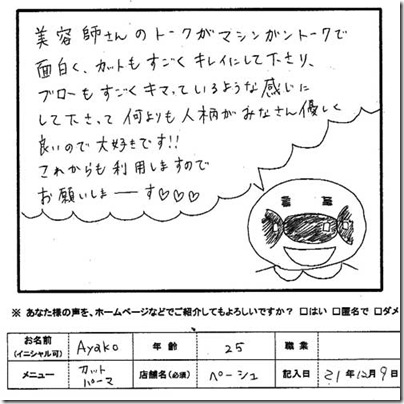 美容師さんのトークがマシンガントークで
面白く、カットもすごくキレイにして下さり、
ブローもすごくキマっているような感じに
して下さって何よりも人柄がみなさん優しく
良いので大好きです!!
これからも利用しますので
お願いしまーーす♡♡♡
※ あなた様の声を、ホームページなどでご紹介してもよろしいですか? □はい □匿名で □ダメ
お名前(イニシャル可) Ayako 年齢 25 職業
メニュー カット パーマ 店舗名(必須) ペーシュ 記入日 21年12月9日